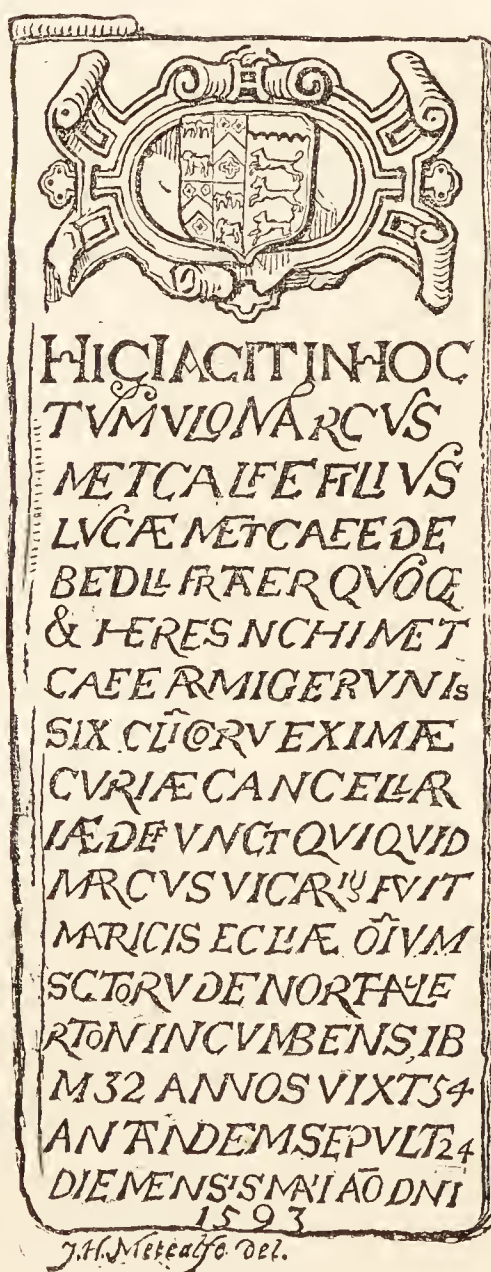 HIC IACIT IN HOC
TVMVLO MARCVS
METCALFE FILIVS
LVCÆ METCAFE DE
BEDLL FRATER QVOQE
& HERES NCHI MET
CAFE ARMIGER VNIS
SIX CLĪCORV EXIMÆ
CVRIÆ CANCELLAR
IÆ DEFVNCT QVI QVID
MARCVS VICARIUS FVIT
MATRICIS ECLIÆ OĪVM
SCTORV DE NORTHALE
RTON INCVMBENS, IB
M 32 ANNOS VIXT 54
AN TANDEM SEPVLT 24
DIE MENSIS MAI AŌ DNI
1593
J.H. Metcalfe del.